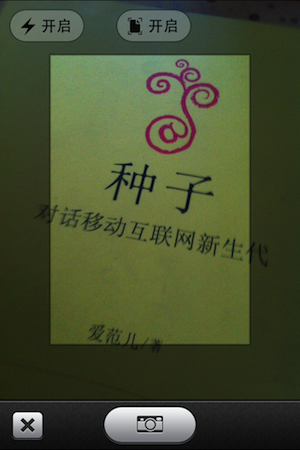 开启 开启
@
种子
对话移动互联网新生代
爱范儿/著